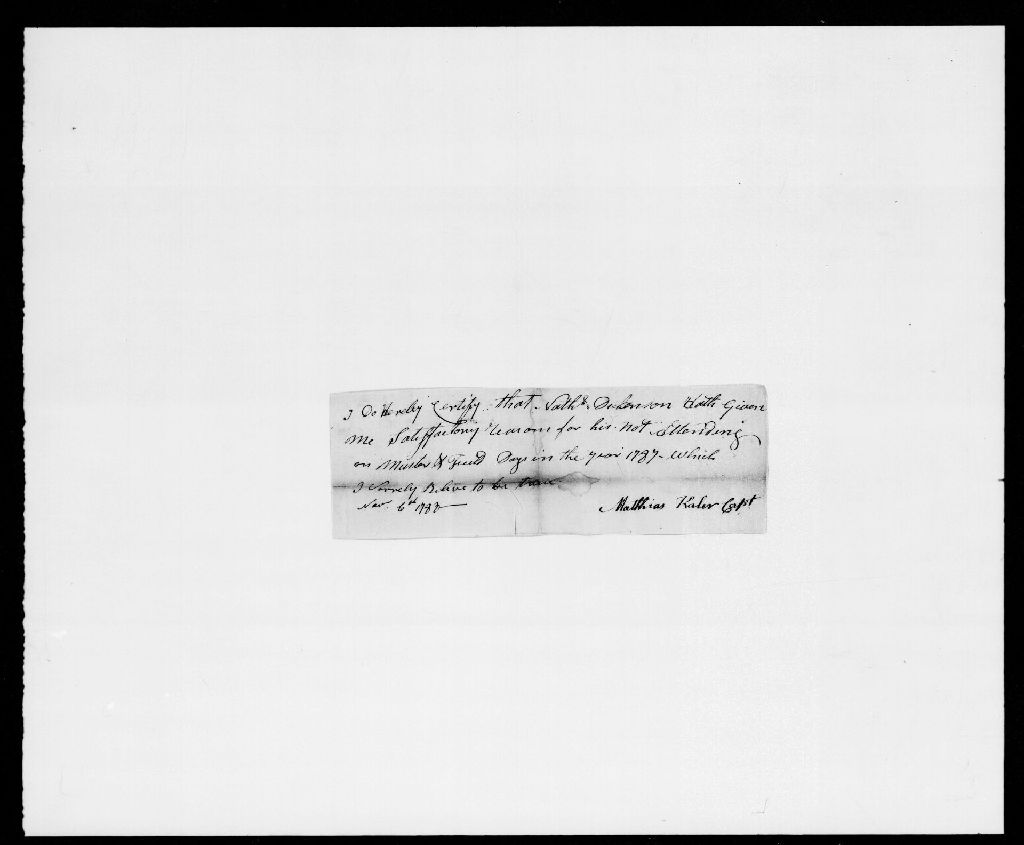 I Do Hereby Certify that Nath.l Dickenson Hath Given
me Satisffactory reasons for his not Attending
on Muster & Field Days in the year 1787 - Which
I Verely Beleve to be true
Nov. 6th 1787
Matthias Kaler Capt